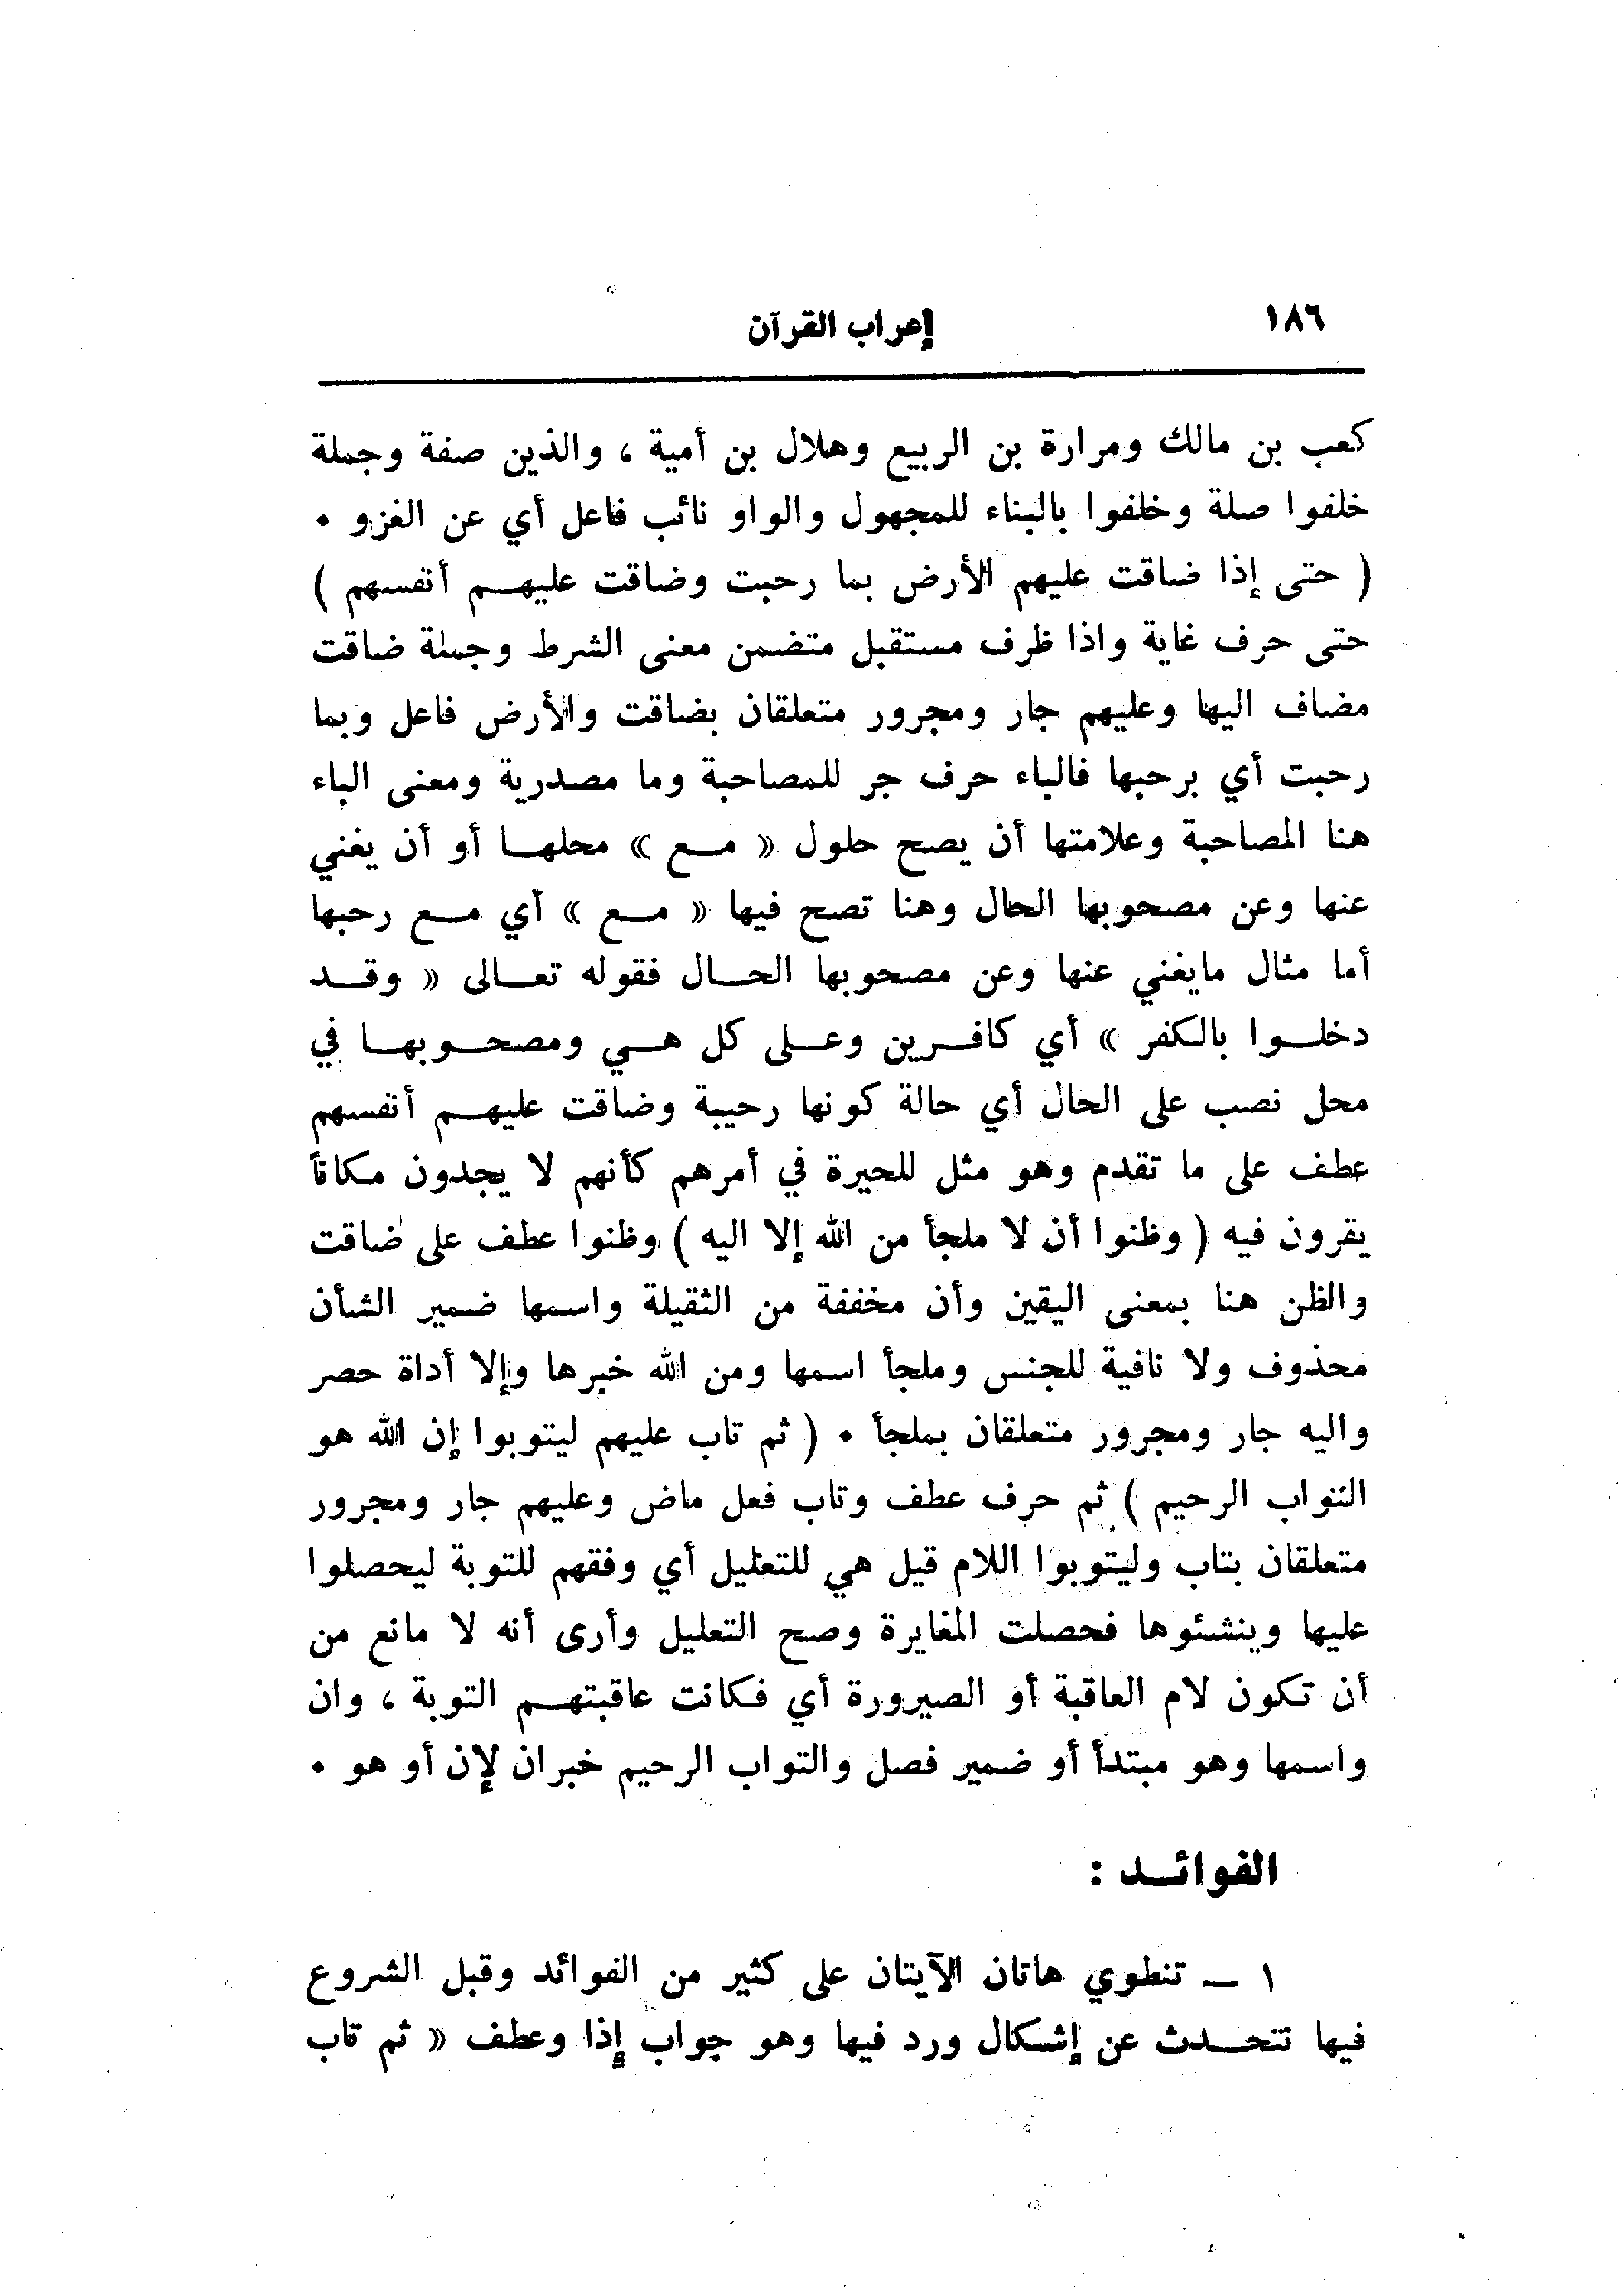 ١٨٦ إعراب القرآن
كعب بن مالك ومرارة بن الربيع وهلال بن أمية ، والذين صفة وجملة
خلفوا صلة وخلفوا بالبناء للمجهول والواو نائب فاعل أي عن الغزو ٠
( حتى إذا ضاقت عليهم الأرض بما رحبت وضاقت عليهــم أنفسهم )
حتى حرف غاية واذا ظرف مستقبل متضمن معنى الشرط وجملة ضاقت
مضاف اليها وعليهم جار ومجرور متعلقان بضاقت والأرض فاعل وبما
رحبت أي برحبها فالباء حرف جر للمصاحبة وما مصدرية ومعنى الباء
هنا المصاحبة وعلامتها أن يصح حلول « مــع » محلهــا أو أن يغني
عنها وعن مصحوبها الحال وهنا تصح فيها « مــع » أي مــع رحبها
أما مثال مايغني عنها وعن مصحوبها الحــال فقوله تعــالى « وقــد
دخلــوا بالكفر » أي كافــرين وعــلى كل هــي ومصحــوبهــا في
محل نصب على الحال أي حالة كونها رحيبة وضاقت عليهــم أنفسهم
عطف على ما تقدم وهو مثل للحيرة في أمرهم كأنهم لا يجدون مكاناً
يقرون فيه ( وظنوا أن لا ملجأ من الله إلا اليه ) وظنوا عطف على ضاقت
والظن هنا بمعنى اليقين وأن مخففة من الثقيلة واسمها ضمير الشأن
محذوف ولا نافية للجنس وملجأ اسمها ومن الله خبرها وإلا أداة حصر
واليه جار ومجرور متعلقان بملجأ ٠ ( ثم تاب عليهم ليتوبوا إن الله هو
التواب الرحيم ) ثم حرف عطف وتاب فعل ماض وعليهم جار ومجرور
متعلقان بتاب وليتوبوا اللام قيل هي للتعليل أي وفقهم للتوبة ليحصلوا
عليها وينشئوها فحصلت المغايرة وصح التعليل وأرى أنه لا مانع من
أن تكون لام العاقبة أو الصيرورة أي فكانت عاقبتهــم التوبة ، وان
واسمها وهو مبتدأ أو ضمير فصل والتواب الرحيم خبران لإن أو هو ٠
الفوائــد :
١ ـ تنطوي هاتان الآيتان على كثير من الفوائد وقبل الشروع
فيها نتحــدث عن إشكال ورد فيها وهو جواب إذا وعطف « ثم تاب